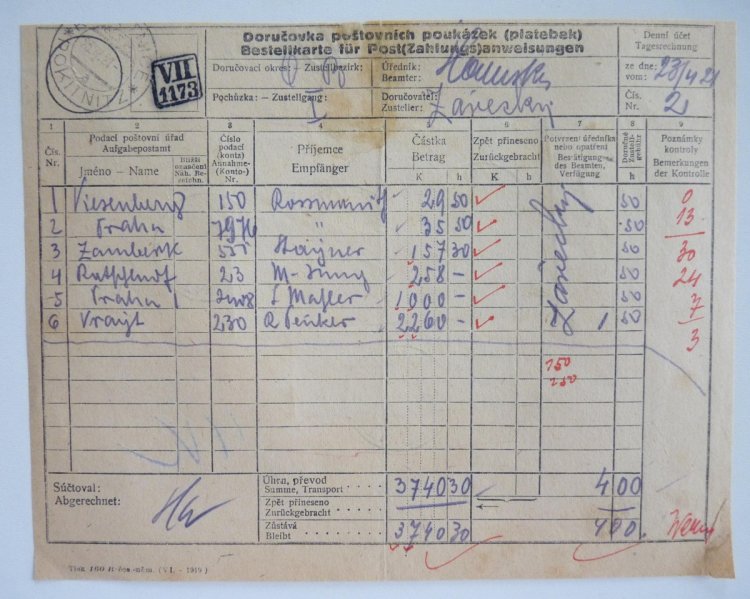 Doručovka poštovních poukázek (platebek)
Bestellkarte für Post(Zahlungs)anweisungen
Denní účet
Tagesrechnung
ROKITNITZ
VII
1173
Doručovací okres: – Zustellbezirk:
Úředník:
Beamter:
ze dne: 23/4 21
vom:
Pochůzka: – Zustellgang: I
Doručovatel: Zářecký
Zusteller:
Čís. 2
Nr.
1 2 3 4 5 6 7 8 9
Čís. Nr.
Podací poštovní úřad
Aufgabepostamt
Jméno – Name
Bližší označení
Näh. Bezeichn.
Číslo podací (konta)
Annahme- (Konto-) Nr.
Příjemce
Empfänger
Částka
Betrag
K h
Zpět přineseno
Zurückgebracht
K h
Potvrzení úředníka nebo opatření
Bestätigung des Beamten, Verfügung
Doručné
Zustellgebühr
h
Poznámky kontroly
Bemerkungen der Kontrolle
1 Viesenberg 150 29 50 50 0
2 Praha 7976 " 35 50 50 13
3 Žamberk 551 157 30 50 30
4 23 258 – 50 24
5 Praha 1 1000 – 50 7
6 230 2260 – 1 50 3
Zářecký
150
250
Súčtoval:
Abgerechnet:
Úhrn, převod
Summe, Transport 3740 30 4 00
Zpět přineseno
Zurückgebracht
Zůstává
Bleibt 3740 30 400
Tisk 160 B čes.-něm. (VI. - 1919)